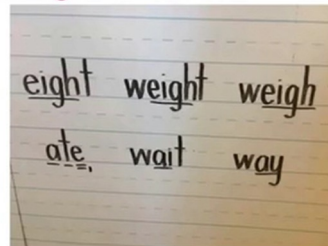 eight weight weigh
ate, wait way